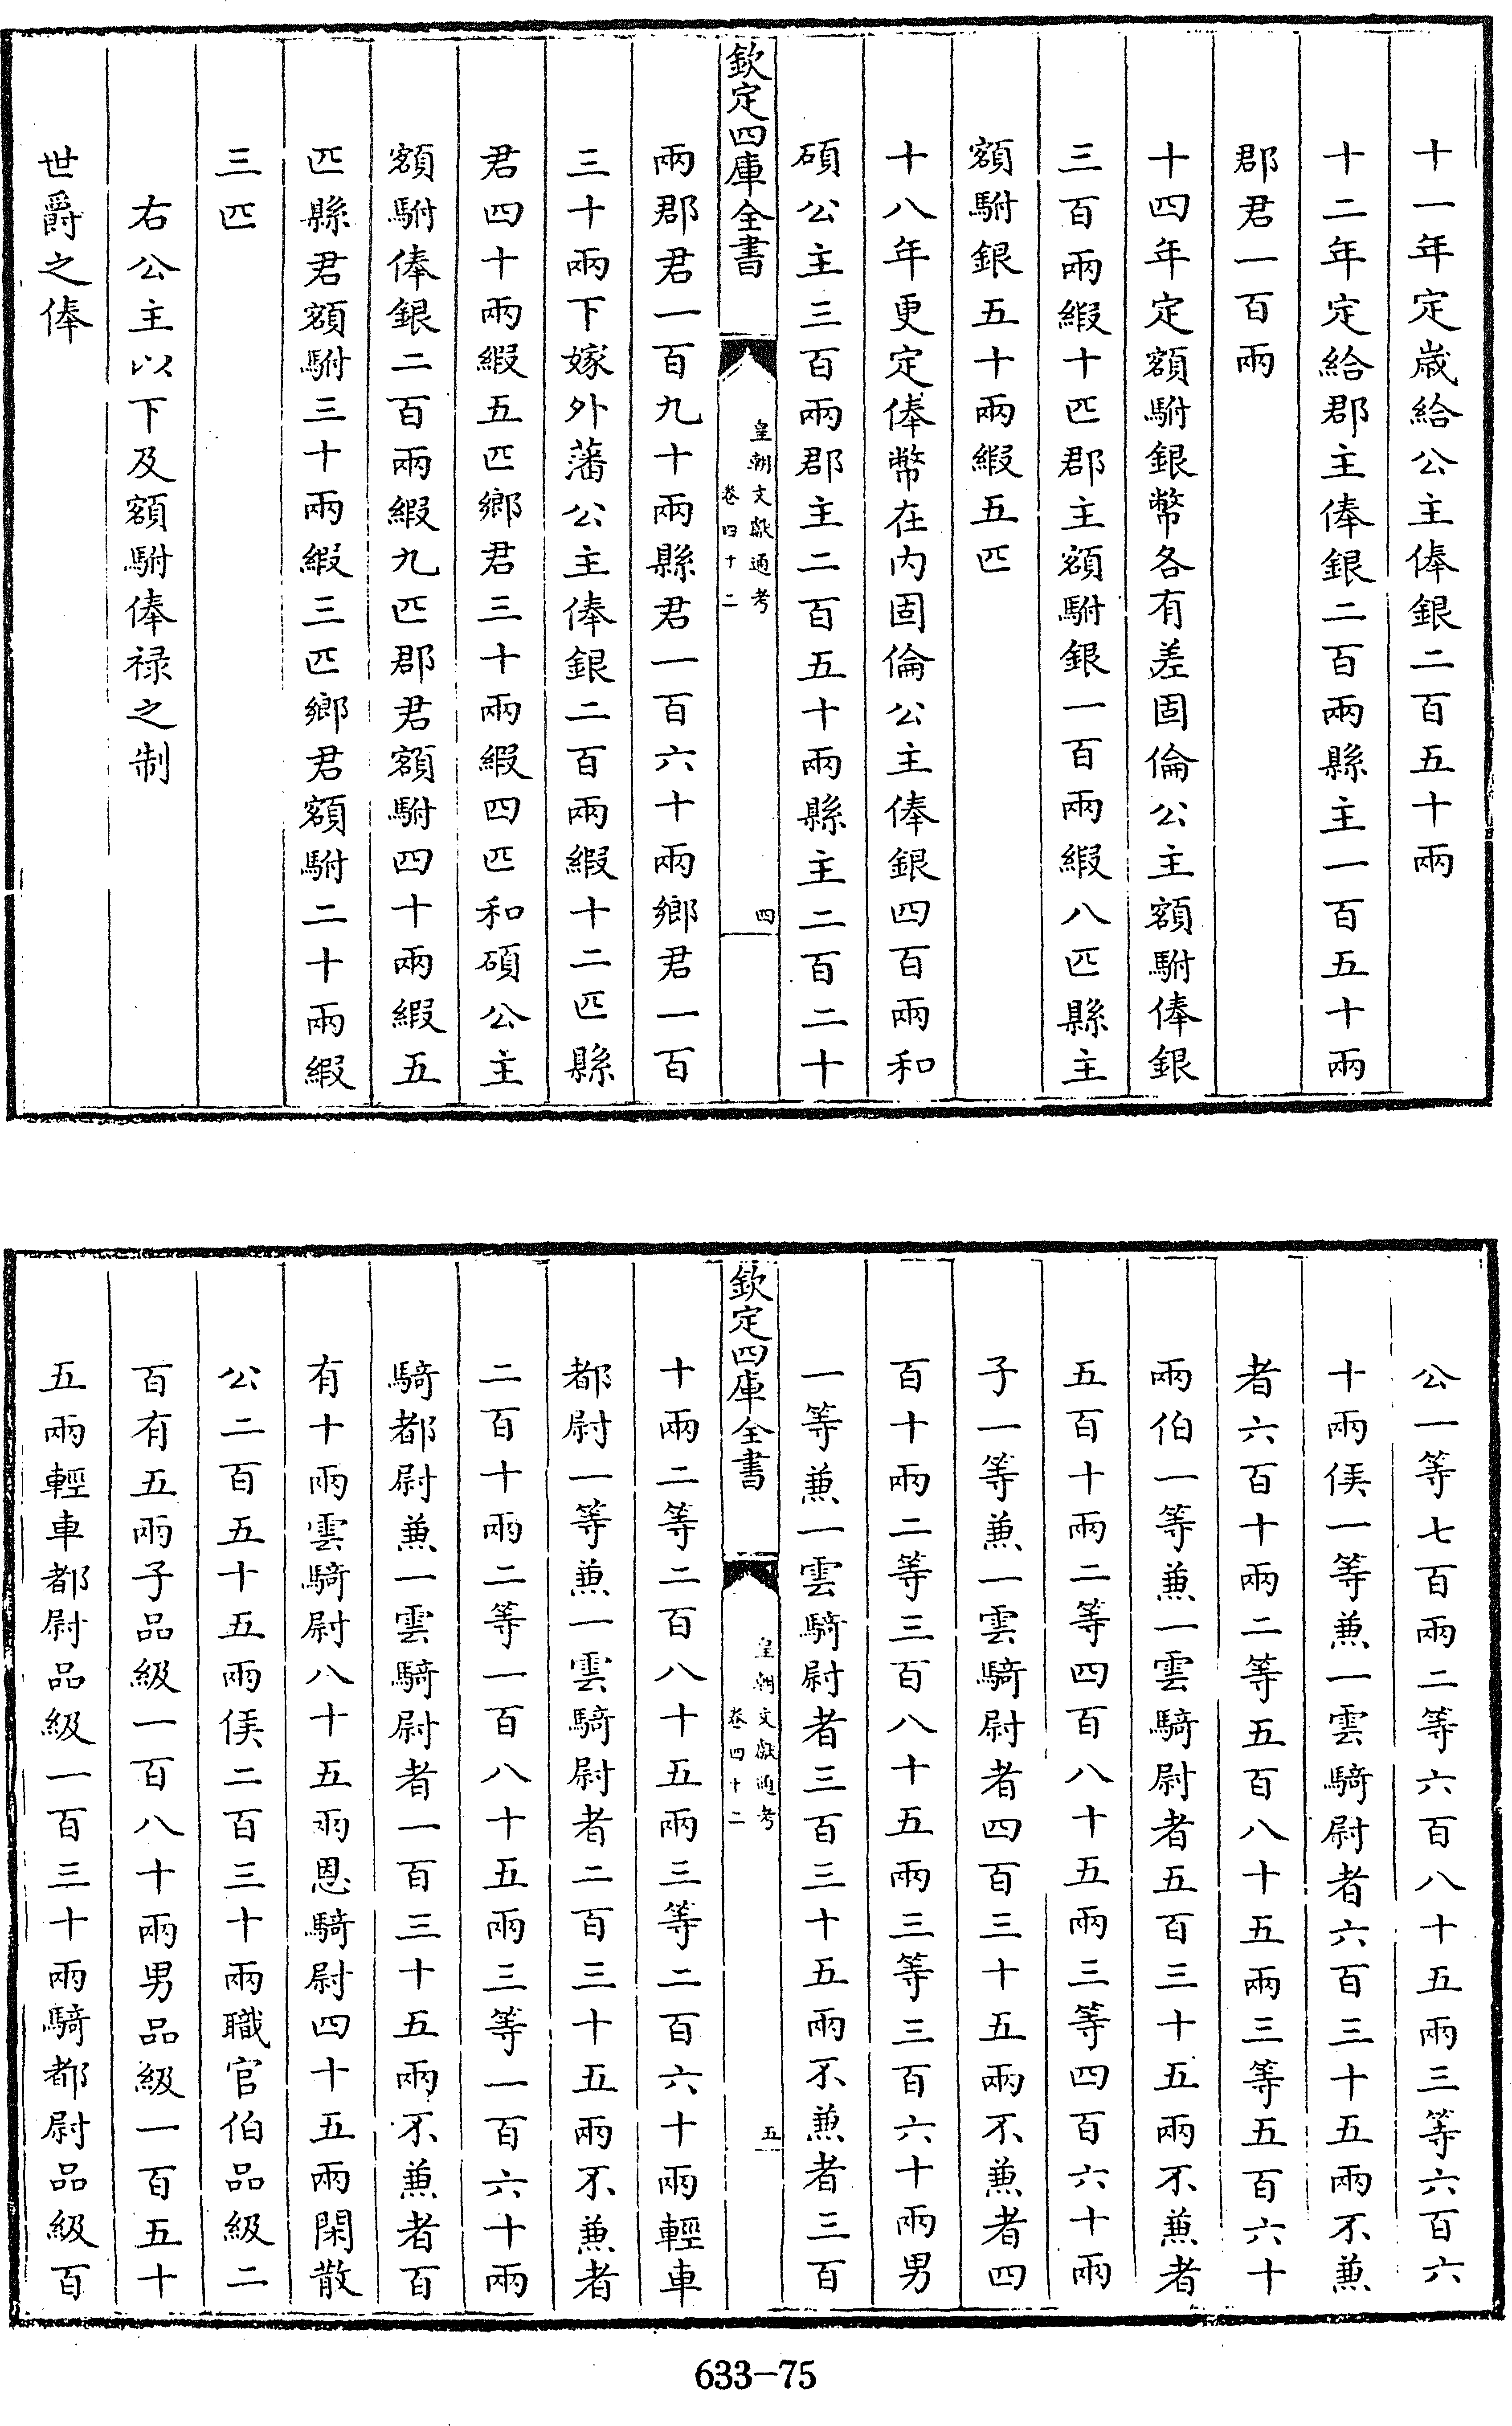 十一年定歳給公主俸銀二百五十兩
十二年定給郡主俸銀二百兩縣主一百五十兩
郡君一百兩
十四年定額駙銀幣各有差固倫公主額駙俸銀
三百兩緞十匹郡主額駙銀一百兩緞八匹縣主
額駙銀五十兩緞五匹
十八年更定俸幣在内固倫公主俸銀四百兩和
碩公主三百兩郡主二百五十兩縣主二百二十
欽定四庫全書
皇朝文獻通考
卷四十二
四
兩郡君一百九十兩縣君一百六十兩鄉君一百
三十兩下嫁外藩公主俸銀二百兩緞十二匹縣
君四十兩緞五匹鄉君三十兩緞四匹和碩公主
額駙俸銀二百兩緞九匹郡君額駙四十兩緞五
匹縣君額駙三十兩緞三匹鄉君額駙二十兩緞
三匹
右公主以下及額駙俸禄之制
世爵之俸
公一等七百兩二等六百八十五兩三等六百六
十兩侯一等兼一雲騎尉者六百三十五兩不兼
者六百十兩二等五百八十五兩三等五百六十
兩伯一等兼一雲騎尉者五百三十五兩不兼者
五百十兩二等四百八十五兩三等四百六十兩
子一等兼一雲騎尉者四百三十五兩不兼者四
百十兩二等三百八十五兩三等三百六十兩男
一等兼一雲騎尉者三百三十五兩不兼者三百
欽定四庫全書
皇朝文獻通考
卷四十二
五
十兩二等二百八十五兩三等二百六十兩輕車
都尉一等兼一雲騎尉者二百三十五兩不兼者
二百十兩二等一百八十五兩三等一百六十兩
騎都尉兼一雲騎尉者一百三十五兩不兼者百
有十兩雲騎尉八十五兩恩騎尉四十五兩閑散
公二百五十五兩侯二百三十兩職官伯品級二
百有五兩子品級一百八十兩男品級一百五十
五兩輕車都尉品級一百三十兩騎都尉品級百
633-75